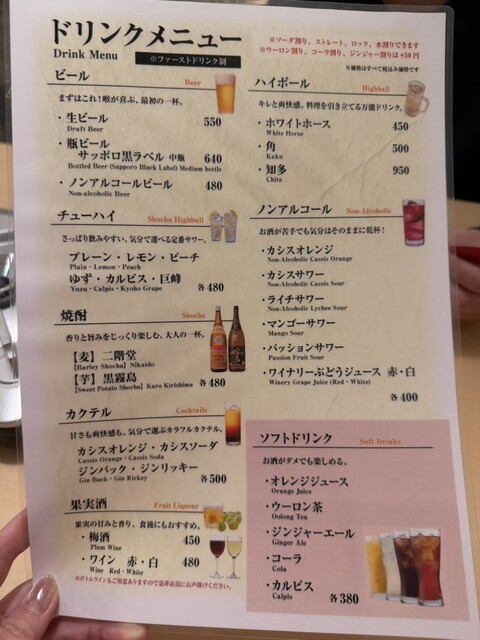 ドリンクメニュー
Drink Menu
※ファーストドリンク制
※ソーダ割り、ストレート、ロック、水割りできます
※ウーロン割り、コーラ割り、ジンジャー割りは+50円
※価格はすべて税込み価格です
ビール Beer
まずはこれ！喉が喜ぶ、最初の一杯。
・生ビール 550
Draft Beer
・瓶ビール
サッポロ黒ラベル 中瓶 640
Bottled Beer (Sapporo Black Label) Medium bottle
・ノンアルコールビール 480
Non-alcoholic Beer
チューハイ Shochu Highball
さっぱり飲みやすい、気分で選べる定番サワー。
プレーン・レモン・ピーチ
Plain・Lemon・Peach
ゆず・カルピス・巨峰
Yuzu・Calpis・Kyoho Grape 各480
焼酎 Shochu
香りと旨みをじっくり楽しむ、大人の一杯。
【麦】二階堂
[Barley Shochu] Nikaido
【芋】黒霧島
[Sweet Potato Shochu] Kuro Kirishima 各480
カクテル Cocktails
甘さも爽快感も、気分で選ぶカラフルカクテル。
カシスオレンジ・カシスソーダ
Cassis Orange・Cassis Soda
ジンバック・ジンリッキー
Gin Buck・Gin Rickey 各500
果実酒 Fruit Liqueur
果実の甘みと香り、食後にもおすすめ。
・梅酒 450
Plum Wine
・ワイン 赤・白 480
Wine Red・White
※ボトルワインもご用意ありますので是非店員にお声掛けください。
ハイボール Highball
キレと爽快感。料理を引き立てる万能ドリンク。
・ホワイトホース 450
White Horse
・角 500
Kaku
・知多 950
Chita
ノンアルコール Non-Alcoholic
お酒が苦手でも気分はそのままに乾杯！
・カシスオレンジ
Non-Alcoholic Cassis Orange
・カシスサワー
Non-Alcoholic Cassis Sour
・ライチサワー
Non-Alcoholic Lychee Sour
・マンゴーサワー
Mango Sour
・パッションサワー
Passion Fruit Sour
・ワイナリーぶどうジュース 赤・白
Winery Grape Juice (Red・White)
各400
ソフトドリンク Soft Drinks
お酒がダメでも楽しめる。
・オレンジジュース
Orange Juice
・ウーロン茶
Oolong Tea
・ジンジャーエール
Ginger Ale
・コーラ
Cola
・カルピス
Calpis 各380